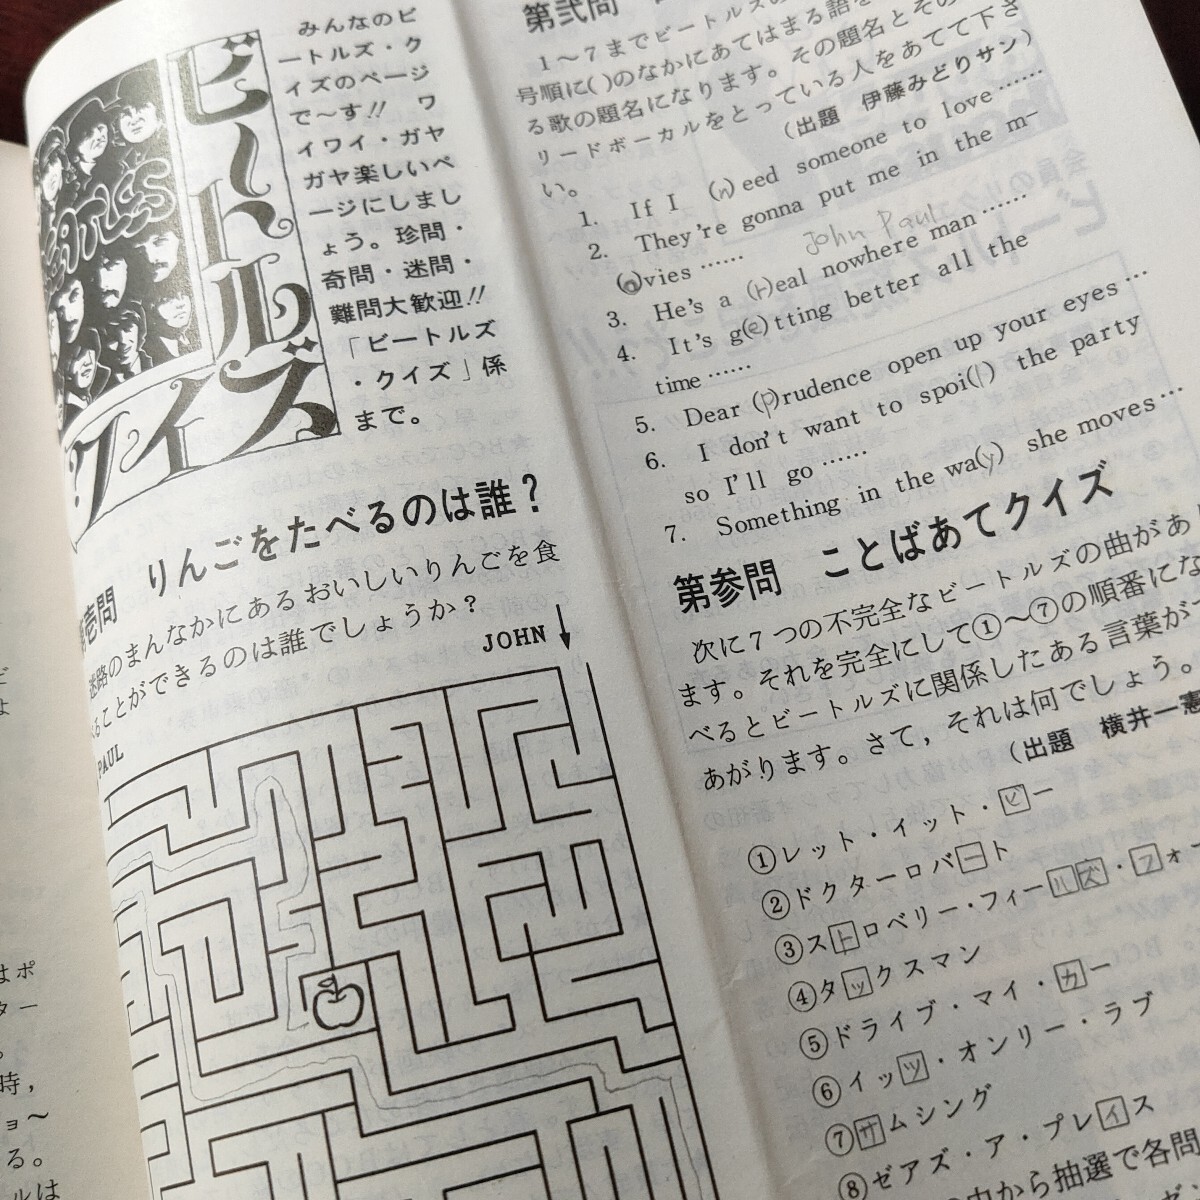 BEATLES
ビートルズ
クイズ
みんなのビ
ートルズ・ク
イズのページ
で〜す!! ワ
イワイ・ガヤ
ガヤ楽しいペ
ージにしまし
ょう。珍問・
奇問・迷問・
難問大歓迎!!
「ビートルズ
・クイズ」係
まで。
壱問 りんごをたべるのは誰？
迷路のまんなかにあるおいしいりんごを食
ることができるのは誰でしょうか？
JOHN
PAUL
第弐問
1〜7までビートルズの
号順に( )のなかにあてはまる語を
る歌の題名になります。その題名とその
リードボーカルをとっている人をあてて下さ
い。
(出題 伊藤みどりサン)
1. If I (n)eed someone to love……
2. They're gonna put me in the m-
(o)vies ……
John Paul
3. He's a (r)eal nowhere man……
4. It's g(e)tting better all the
time……
5. Dear (p)rudence open up your eyes…
6. I don't want to spoi(l) the party
so I'll go……
7. Something in the wa(y) she moves…
第参問 ことばあてクイズ
次に7つの不完全なビートルズの曲があ
ます。それを完全にして①〜⑦の順番にな
べるとビートルズに関係したある言葉が
あがります。さて，それは何でしょう。
(出題 横井一憲
①レット・イット・ビー
②ドクターロバート
③ストロベリー・フィールズ・フォー
④タックスマン
⑤ドライブ・マイ・カー
⑥イッツ・オンリー・ラブ
⑦サムシング
⑧ゼアズ・ア・プレイス
中から抽選で各問
はポ
ター
時，
ョ〜
る。
ルは